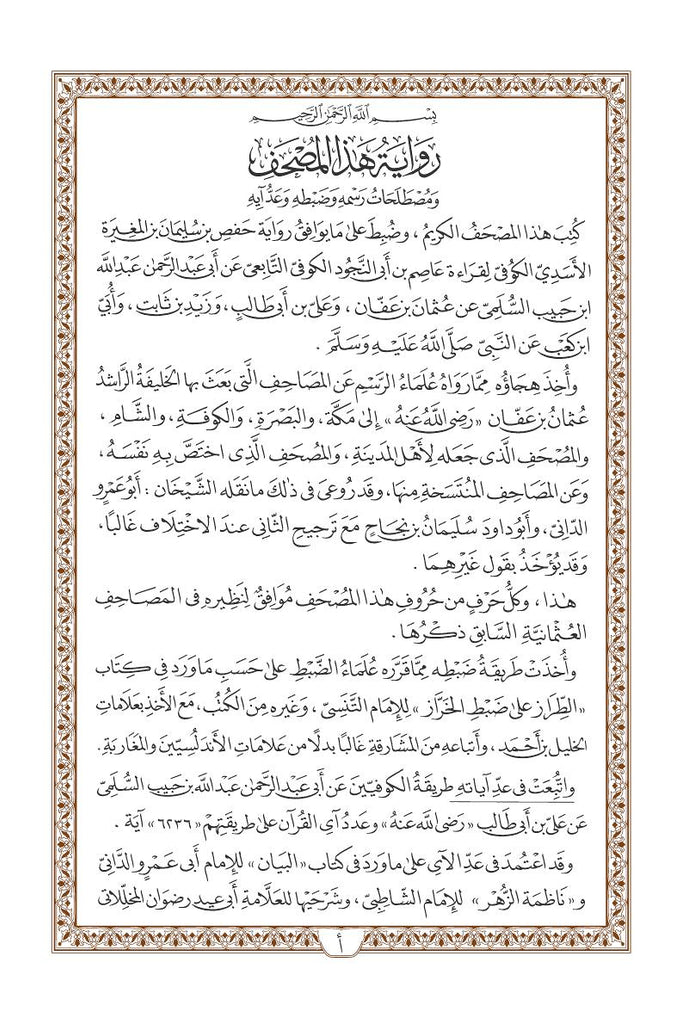 بِسْمِ ٱللَّهِ ٱلرَّحْمَٰنِ ٱلرَّحِيمِ
رِوَايَةُ هَذَا المُصْحَفِ
وَمُصْطَلَحَاتُ رَسْمِهِ وَضَبْطِهِ وَعَدِّ آيِهِ
كُتِبَ هٰذا المصْحَفُ الكريمُ ، وضُبِطَ على ما يوافقُ رِوايَة حَفصِ بن سُليمَانَ بن المغِيرَة
الأسَدِيّ الكُوفىّ لِقراءة عاصِم بن أبى النَّجُود الكوفىّ التَّابعىّ عَن أبى عَبدِ الرَّحمٰن عَبدِ اللَّه
ابن حَبيب السُّلَمِىّ عن عُثمانَ بن عَفَّان ، وَعَلىّ بن أبى طَالبٍ ، وَزَيدِ بن ثَابت ، وَأُبَىّ
ابن كعْب عَن النَّبىّ صَلَّى اللَّهُ عَلَيْهِ وَسَلَّمَ .
وأُخِذَ هِجاؤُه مِمَّا رَوَاهُ عُلَماءُ الرَّسْم عَن المَصَاحِفِ الَّتى بَعَثَ بها الخَليفَةُ الرَّاشدُ
عُثمانُ بن عَفَّان «رَضى اللَّهُ عَنهُ» إلىٰ مَكَّةَ، والبَصْرَةِ، وَالكوفَةِ، والشَّامِ ،
والمُصْحَفِ الَّذى جَعَله لأهْل المدينَةِ، والمُصْحَفِ الَّذِى اختَصَّ بِهِ نَفْسَهُ،
وَعَن المَصَاحِفِ المُنْتَسَخةِ مِنهَا، وقد رُوعىَ فى ذٰلكَ ما نَقَله الشَّيْخَانِ : أبو عَمْرٍو
الدَّانِىّ، وأبُو داودَ سُلَيمَانُ بن نجَاحٍ مَعَ تَرجيحِ الثَّانِى عندَ الاخْتِلَاف غالبًا،
وَقَد يُؤْخَذُ بِقَول غَيرِهِمَا .
هٰذا ، وكلُّ حَرْفٍ من حُرُوفِ هٰذا المُصْحَف مُوَافِقٌ لِنَظِيرِهِ فى المَصَاحِفِ
العُثمانيَّةِ السَّابقِ ذِكْرُهَا .
وأُخِذَتْ طَريقَةُ ضَبْطِه مِمَّا قَرَّرَه عُلَماءُ الضَّبْطِ علىٰ حَسَبِ ما وَرَدَ فى كِتَاب
«الطِّرَاز علىٰ ضَبْطِ الخَرَّاز» للإمَام التَّنَسِىّ ، وغَيره مِنَ الكُتُب، مَعَ الأخذِ بعَلامَاتِ
الخليل بن أحْمَد ، وأتباعهِ مِنَ المَشارقةِ غَالبًا بدلًا من عَلامَاتِ الأندَلُسِيِّينَ والمَغَاربَةِ.
واتُّبِعَتْ فى عدِّ آياتهِ طَريقَةُ الكوفيّينَ عَن أبى عَبدِ الرَّحمٰن عَبدِ اللَّه بن حَبيب السُّلَمِىّ
عَن عَلىّ بن أبى طَالب «رَضى اللَّه عَنهُ» وعَددُ آىِ القُرآن علىٰ طَريقَتِهِمْ «٦٢٣٦» آيَة .
وقَد اعْتُمدَ فى عَدِّ الآىِ علىٰ ما وَرَدَ فى كتَاب «البَيان» للإمَام أبى عَمرٍو الدَّانِىّ
و«نَاظمَة الزُّهْر» للإمَام الشَّاطبِىّ ، وشَرْحَيْها للعَلَّامةِ أبى عيد رضوَان المخَلِّلاتى
أ